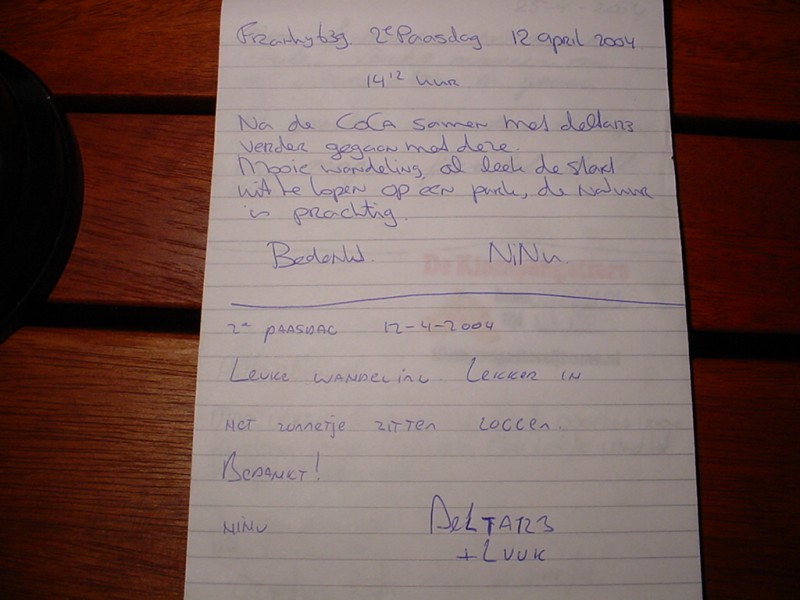 2e Paasdag 12 april 2004
14 12 uur
Na de CoCa samen met delta123
verder gegaan met deze.
Mooie wandeling, al leek de start
uit te lopen op een park, de natuur
is prachtig.
Bedankt. NiNu.
2e PAASDAG 12-4-2004
LEUKE WANDELING. LEKKER IN
HET zonnetje ZITTEN LOGGEN.
BEDANKT!
NINU DELTA123
+ LUUK